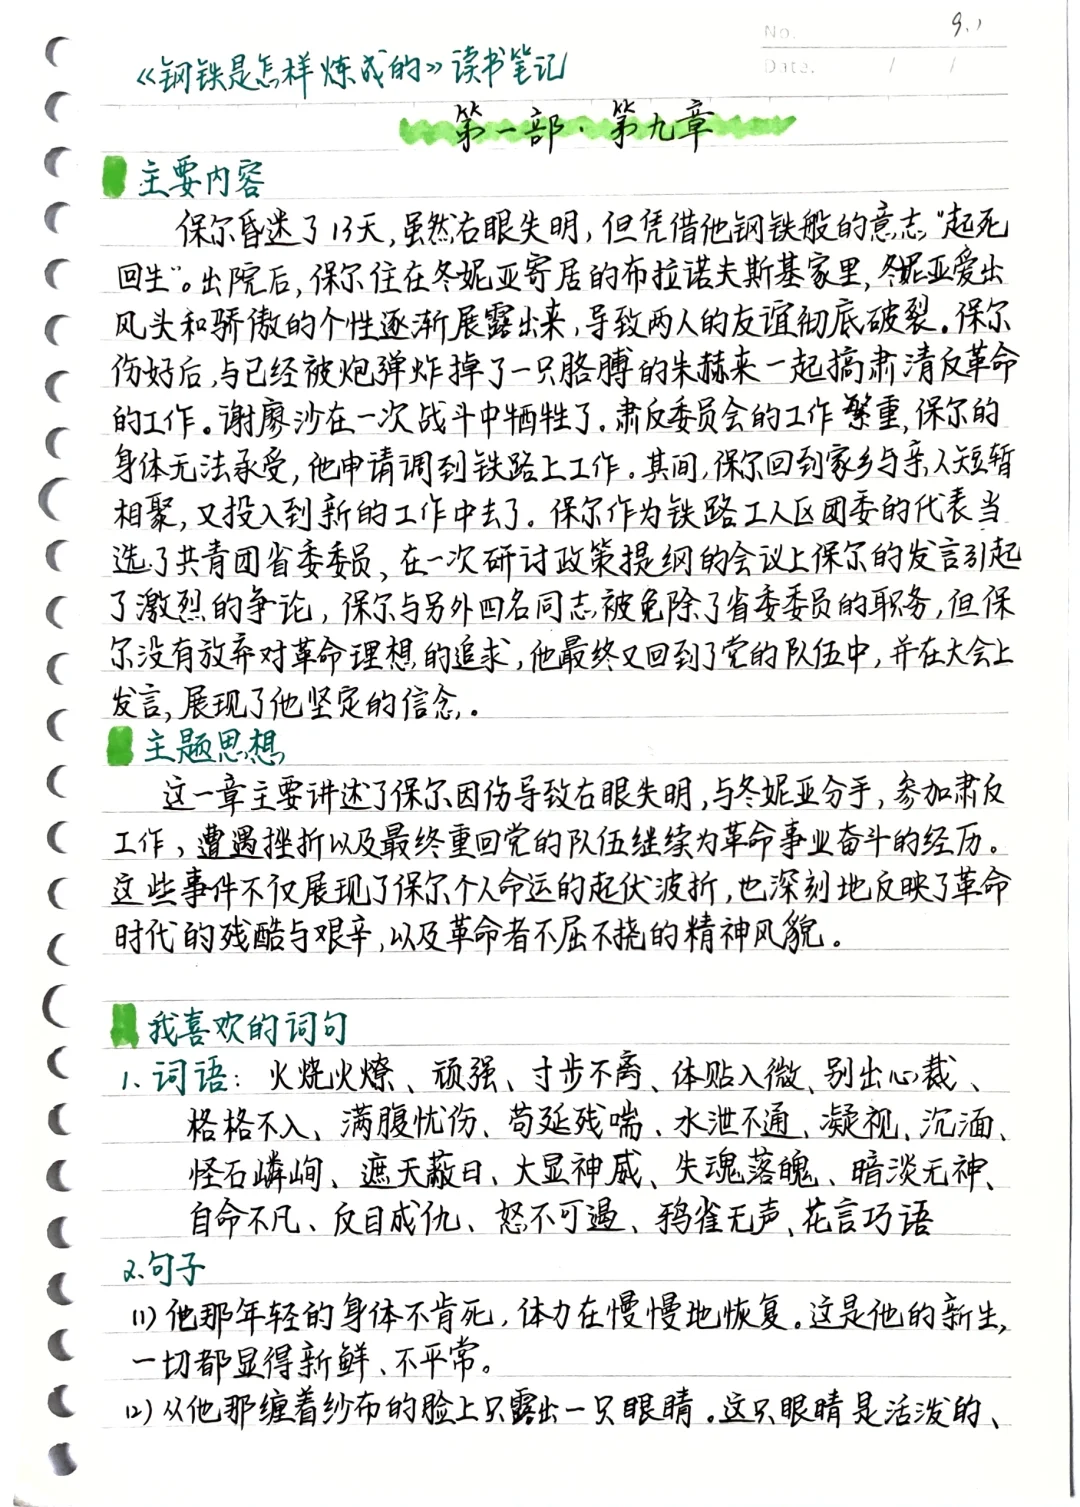 No. 9.1
《钢铁是怎样炼成的》读书笔记
Date. / /
第一部·第九章
主要内容
保尔昏迷了13天,虽然右眼失明,但凭借他钢铁般的意志“起死
回生”。出院后,保尔住在冬妮亚寄居的布拉诺夫斯基家里,冬妮亚爱出
风头和骄傲的个性逐渐展露出来,导致两人的友谊彻底破裂。保尔
伤好后,与已经被炮弹炸掉了一只胳膊的朱赫来一起搞肃清反革命
的工作。谢廖沙在一次战斗中牺牲了。肃反委员会的工作繁重,保尔的
身体无法承受,他申请调到铁路上工作。其间,保尔回到家乡与亲人短暂
相聚,又投入到新的工作中去了。保尔作为铁路工人区团委的代表当
选了共青团省委委员,在一次研讨政策提纲的会议上保尔的发言引起
了激烈的争论,保尔与另外四名同志被免除了省委委员的职务,但保
尔没有放弃对革命理想的追求,他最终又回到了党的队伍中,并在大会上
发言,展现了他坚定的信念。
主题思想
这一章主要讲述了保尔因伤导致右眼失明,与冬妮亚分手,参加肃反
工作,遭遇挫折以及最终重回党的队伍继续为革命事业奋斗的经历。
这些事件不仅展现了保尔个人命运的起伏波折,也深刻地反映了革命
时代的残酷与艰辛,以及革命者不屈不挠的精神风貌。
我喜欢的词句
1.词语:火烧火燎、顽强、寸步不离、体贴入微、别出心裁、
格格不入、满腹忧伤、苟延残喘、水泄不通、凝视、沉湎、
怪石嶙峋、遮天蔽日、大显神威、失魂落魄、暗淡无神、
自命不凡、反目成仇、怒不可遏、鸦雀无声、花言巧语
2.句子
(1)他那年轻的身体不肯死,体力在慢慢地恢复。这是他的新生,
一切都显得新鲜、不平常。
(2)从他那缠着纱布的脸上只露出一只眼睛。这只眼睛是活泼的、